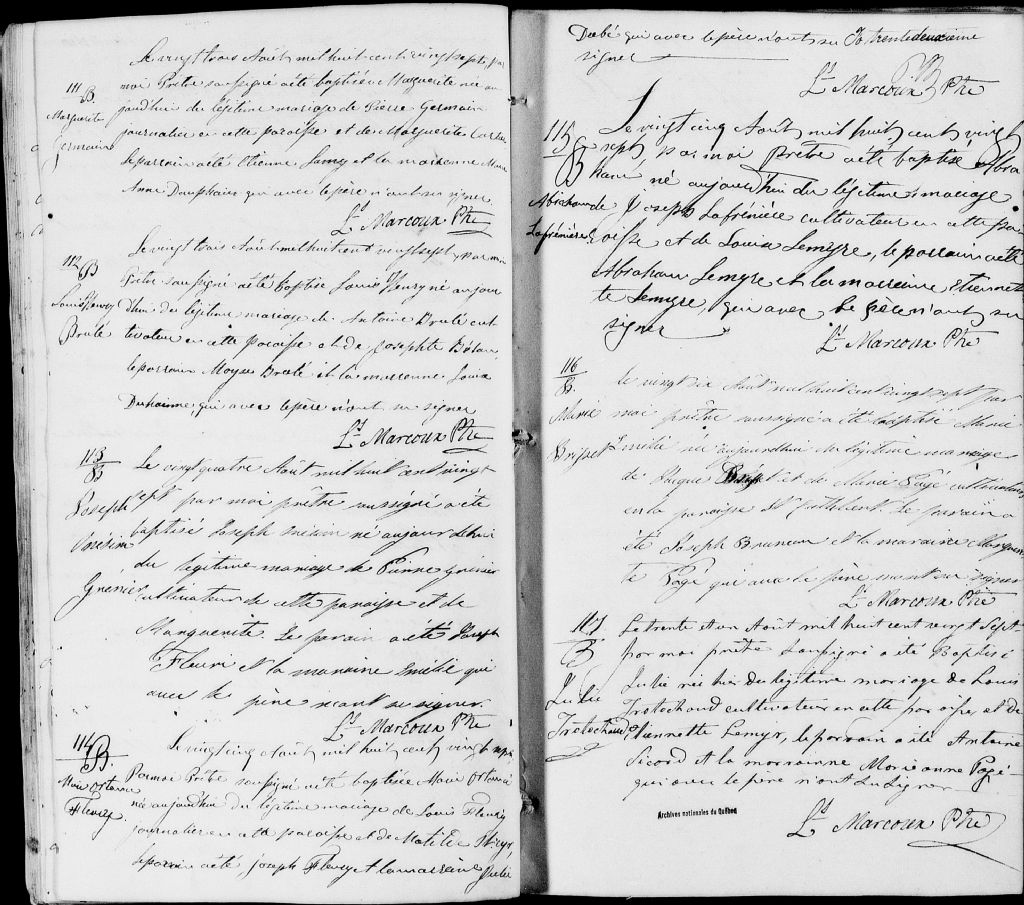 111
B
Marguerite
Germain
Le vingt trois Août mil huit cent vingt sept, par
moi Prêtre soussigné a été baptisée Marguerite née au
jourd'hui du légitime mariage de Pierre Germain
journalier en cette paroisse et de Marguerite
le parrain a été Etienne Lamy et la marienne Marie
Anne Dauphine qui avec le père n'ont su signer
Ls Marcoux Ptre
112
B
Louis Fleury
Brulé
Le vingt trois Août mil huit cent vingt sept, par moi
Prêtre soussigné a été baptisé Louis Fleury né aujour
d'hui du légitime mariage de Antoine Brulé cul
tivateur en cette Paroisse et de Josephte
le parrain Moyse Brulé et la marenne Louise
qui avec le père n'ont su signer
Ls Marcoux Ptre
113
B
Joseph
Onésime
Grenier
Le vingt quatre Août mil huit cent vingt
sept par moi prêtre sussigné a été
baptisé Joseph Onésim né aujourdehui
du legitime mariage de Pierre Grenier
cultivateur de cette paroisse et de
Marguerite. Le parain a été Joseph
Fleuri et la maraine Emélie qui
avec le père n'ont su signer.
Ls Marcoux Ptre
114
B.
Marie
Fleury
Le vingt cinq Août mil huit cent vingt sept
Par moi Prêtre soussigné a été baptisée Marie
née aujourdhui du légitime mariage de Louis Fleury
journalier en cette paroisse et de Matilde
le parain a été, joseph Fleury et la marraine Julie
Dubé qui avec le père n'ont su trente deuxième
signer
Ls Marcoux Ptre
115
B
Abraham
Lafrénière
Le vingt cinq Août mil huit cent vingt
sept, par moi Prêtre a été baptisé Abra
ham né aujourd'hui du légitime mariage
de Joseph Lafrénière cultivateur en cette pa
roisse et de Louise Lemyre, le parrain a été
Abraham Lemyre et la marreine Etiennet
te Lemyre, qui avec le père n'ont su
signer
Ls Marcoux Ptre
116
B
Marie
Brisset
Le vingt six Août mil huit cent vingt sept par
moi prêtre sussigné a été baptisé Marie
Emélie née aujourdhui du légitime mariage
de et de Marie Pagé cultivateur
en la paroisse St Cuthbert. Le parain a
été Joseph Bruneau et la maraine Margueri
te Pagé qui avec le père n'ont su signer
Ls Marcoux Ptre
117
B
Julie
Fretechaud
Le trente et un Août mil huit cent vingt Sept
par moi prêtre Soussigné a été Baptisé
Julie née hier du legitime mariage de Louis
Fretechaud cultivateur en cette paroisse et de
Etiennette Lemyr, le parrain a été Antoine
Sicard et la marrainne Marie anne Pagé
qui avec le père n'ont Su Signer
Archives nationales du Québec
Ls Marcoux Ptre